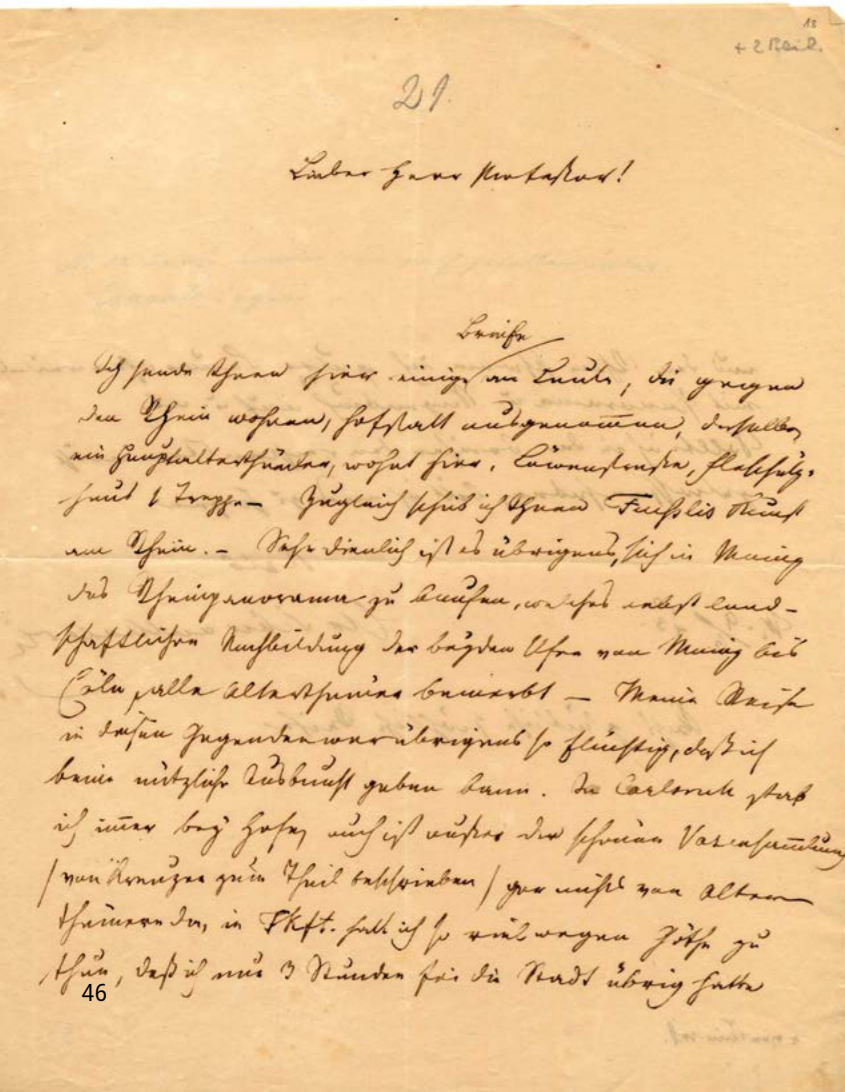 18
+ 2 Beil.
21.
Lieber Herr Professor!
Briefe
Ich sende Ihnen hier einige an Leute, die gegen
den Rhein wohnen, Hofstatt ausgenommen, derselbe,
ein Hauptalterthümler, wohnt hier, Löwenstraße,
haus 1 Treppe – Zugleich schick ich Ihnen Fuesslis Kunst
am Rhein. – Sehr dienlich ist es übrigens, sich in Mainz
das Rheinpanorama zu kaufen, welches nebst land-
schaftlicher Nachbildung der beyden Ufer von Mainz bis
Cöln, alle Alterthümer bemerkt – Meine Reise
in diesen Gegenden war übrigens so flüchtig, daß ich
keine nützliche Auskunft geben kann. In Carlsruh
ich im̅er bey Hofe, auch ist außer der schönen Vasensam̅lung
/ von Kreuzer zum Theil beschrieben / gar nichts von Alter
thümern da, in Fkft. hatt ich so viel wegen Göthe zu
thun, daß ich nur 3 Stunden für die Stadt übrig hatte
46